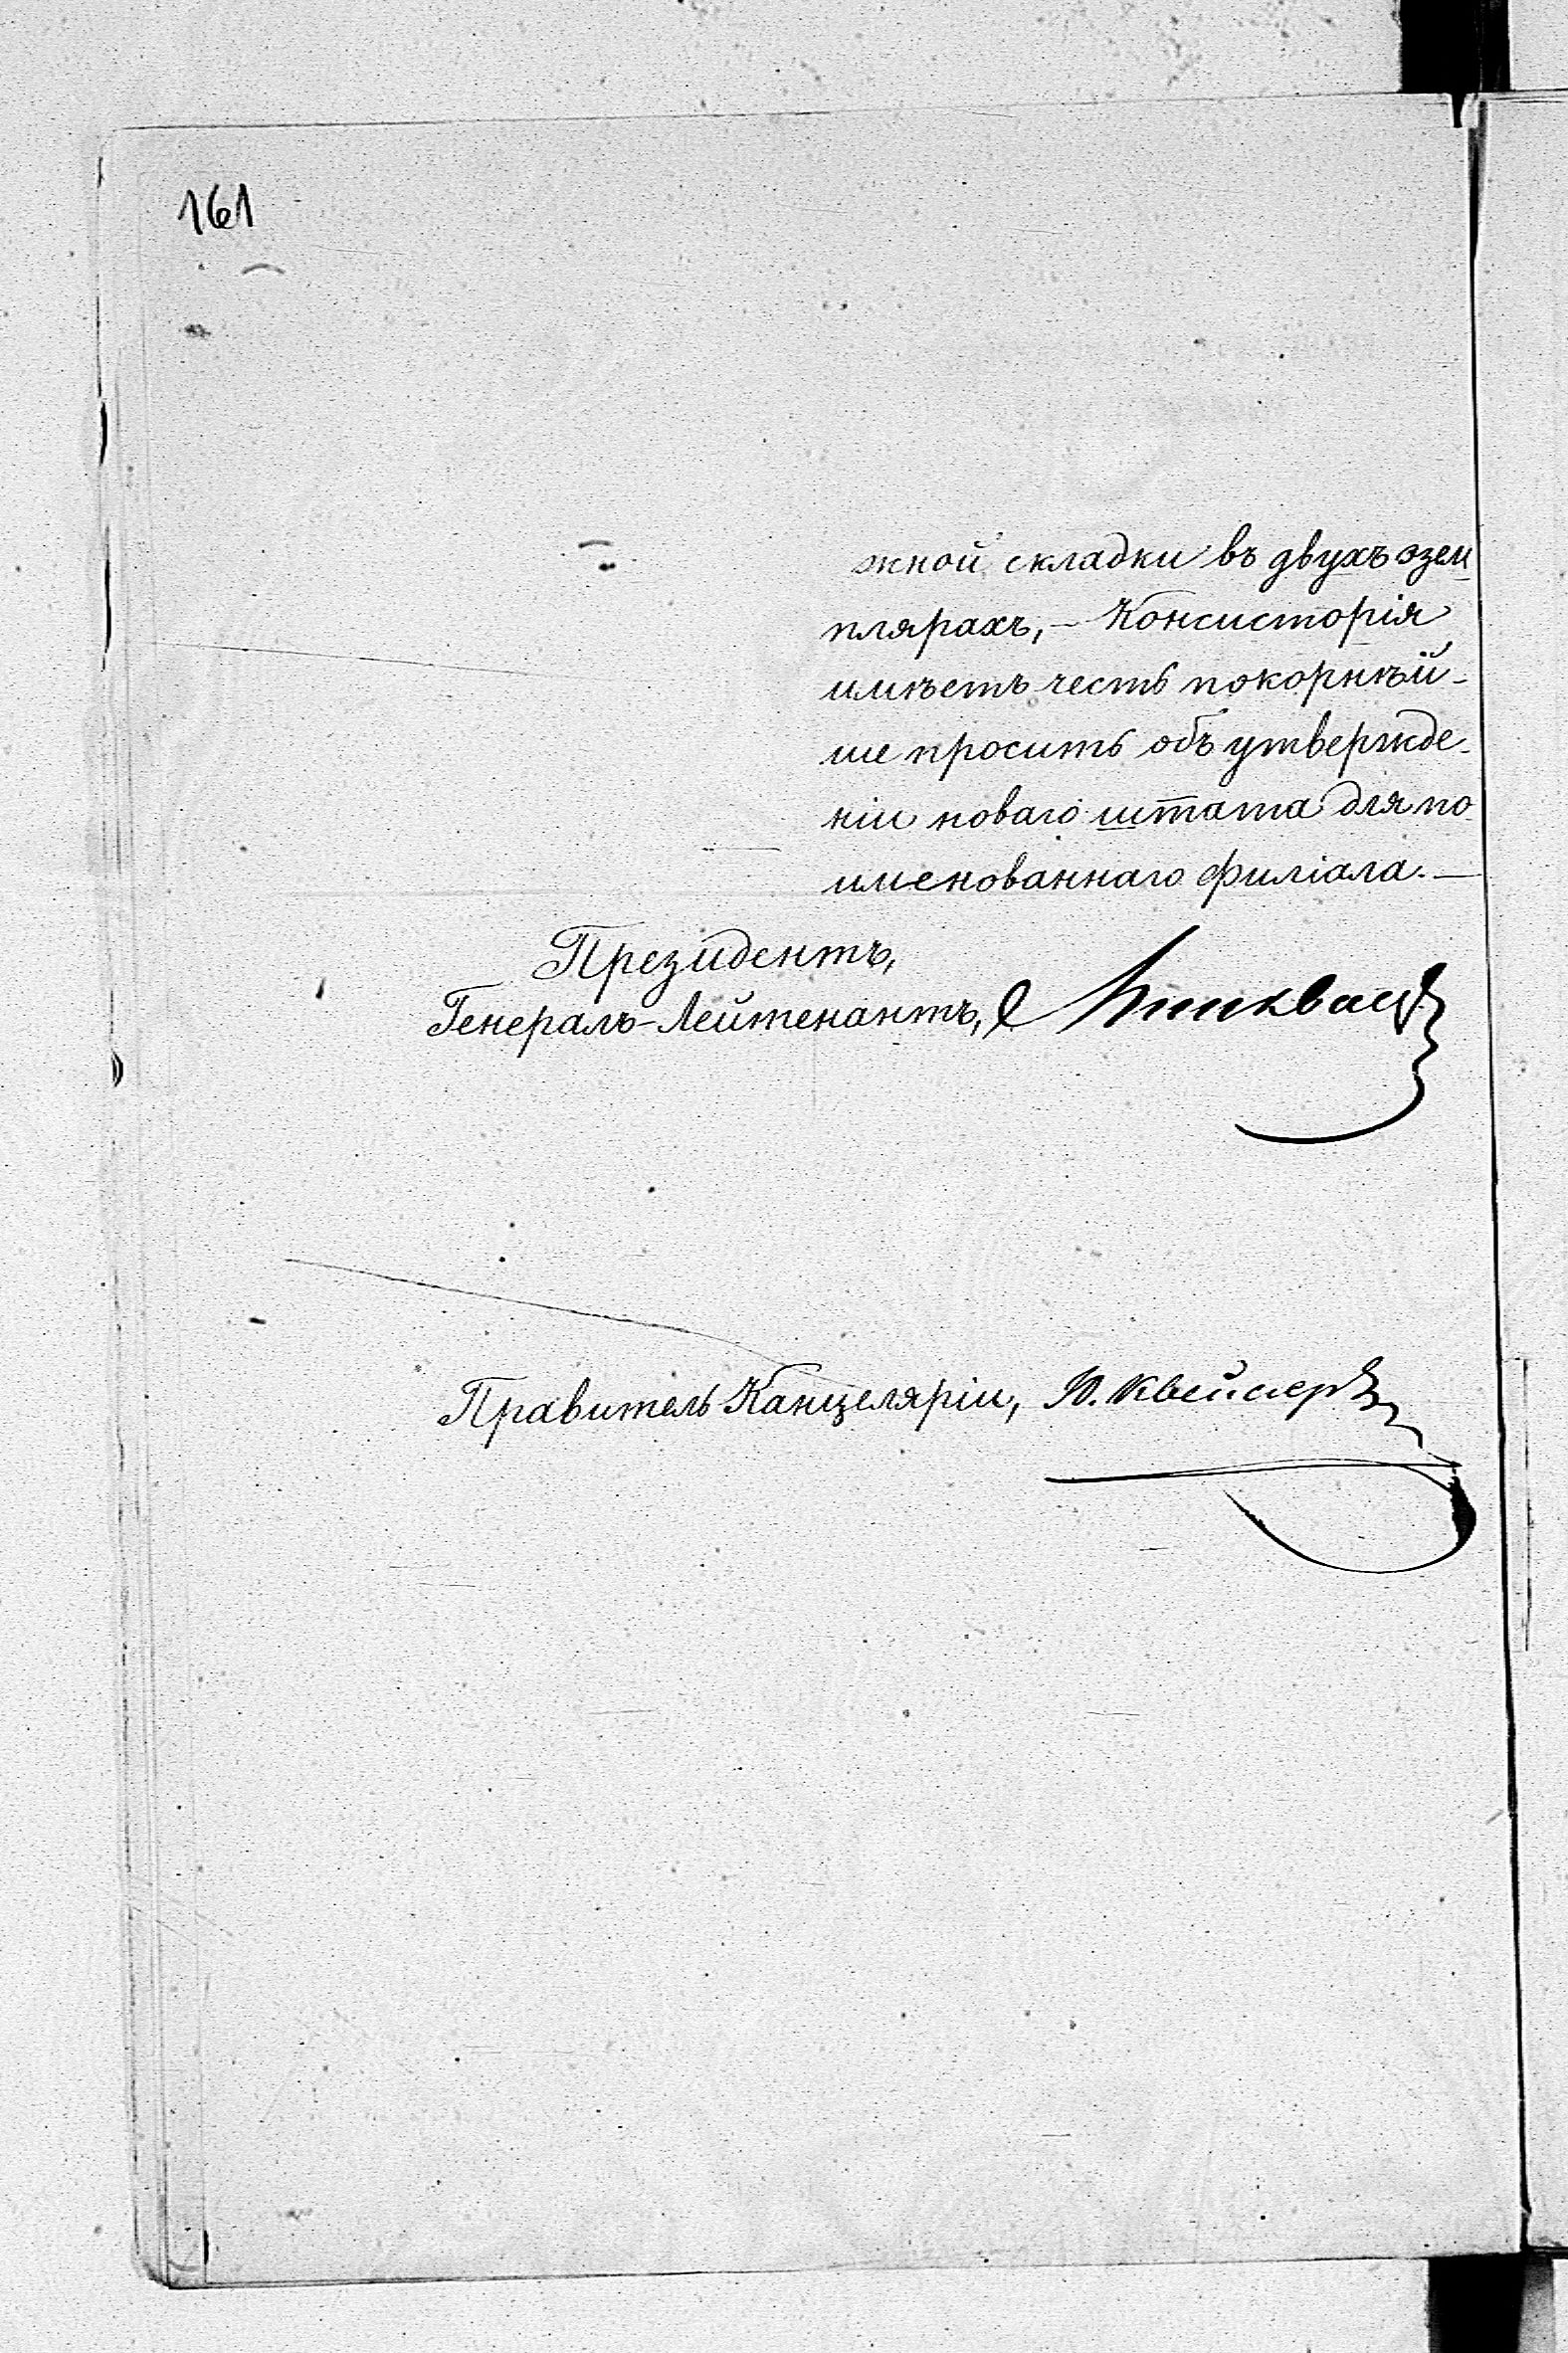 161
жной складки въ двухъ эзем
плярахъ, — Консисторія
имѣетъ честь покорнѣй-
ше просить объ утвержде-
ніи новаго штата для по
именованнаго филіала. —
Президентъ,
Генералъ-Лейтенантъ,
Правитель Канцеляріи, Ю.